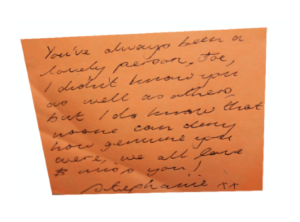 You've always been a
lovely person, Joe,
I didn't know you
as well as others
but I do know that
noone can deny
how genuine you
were, we all love
& miss you!
Stephanie xx